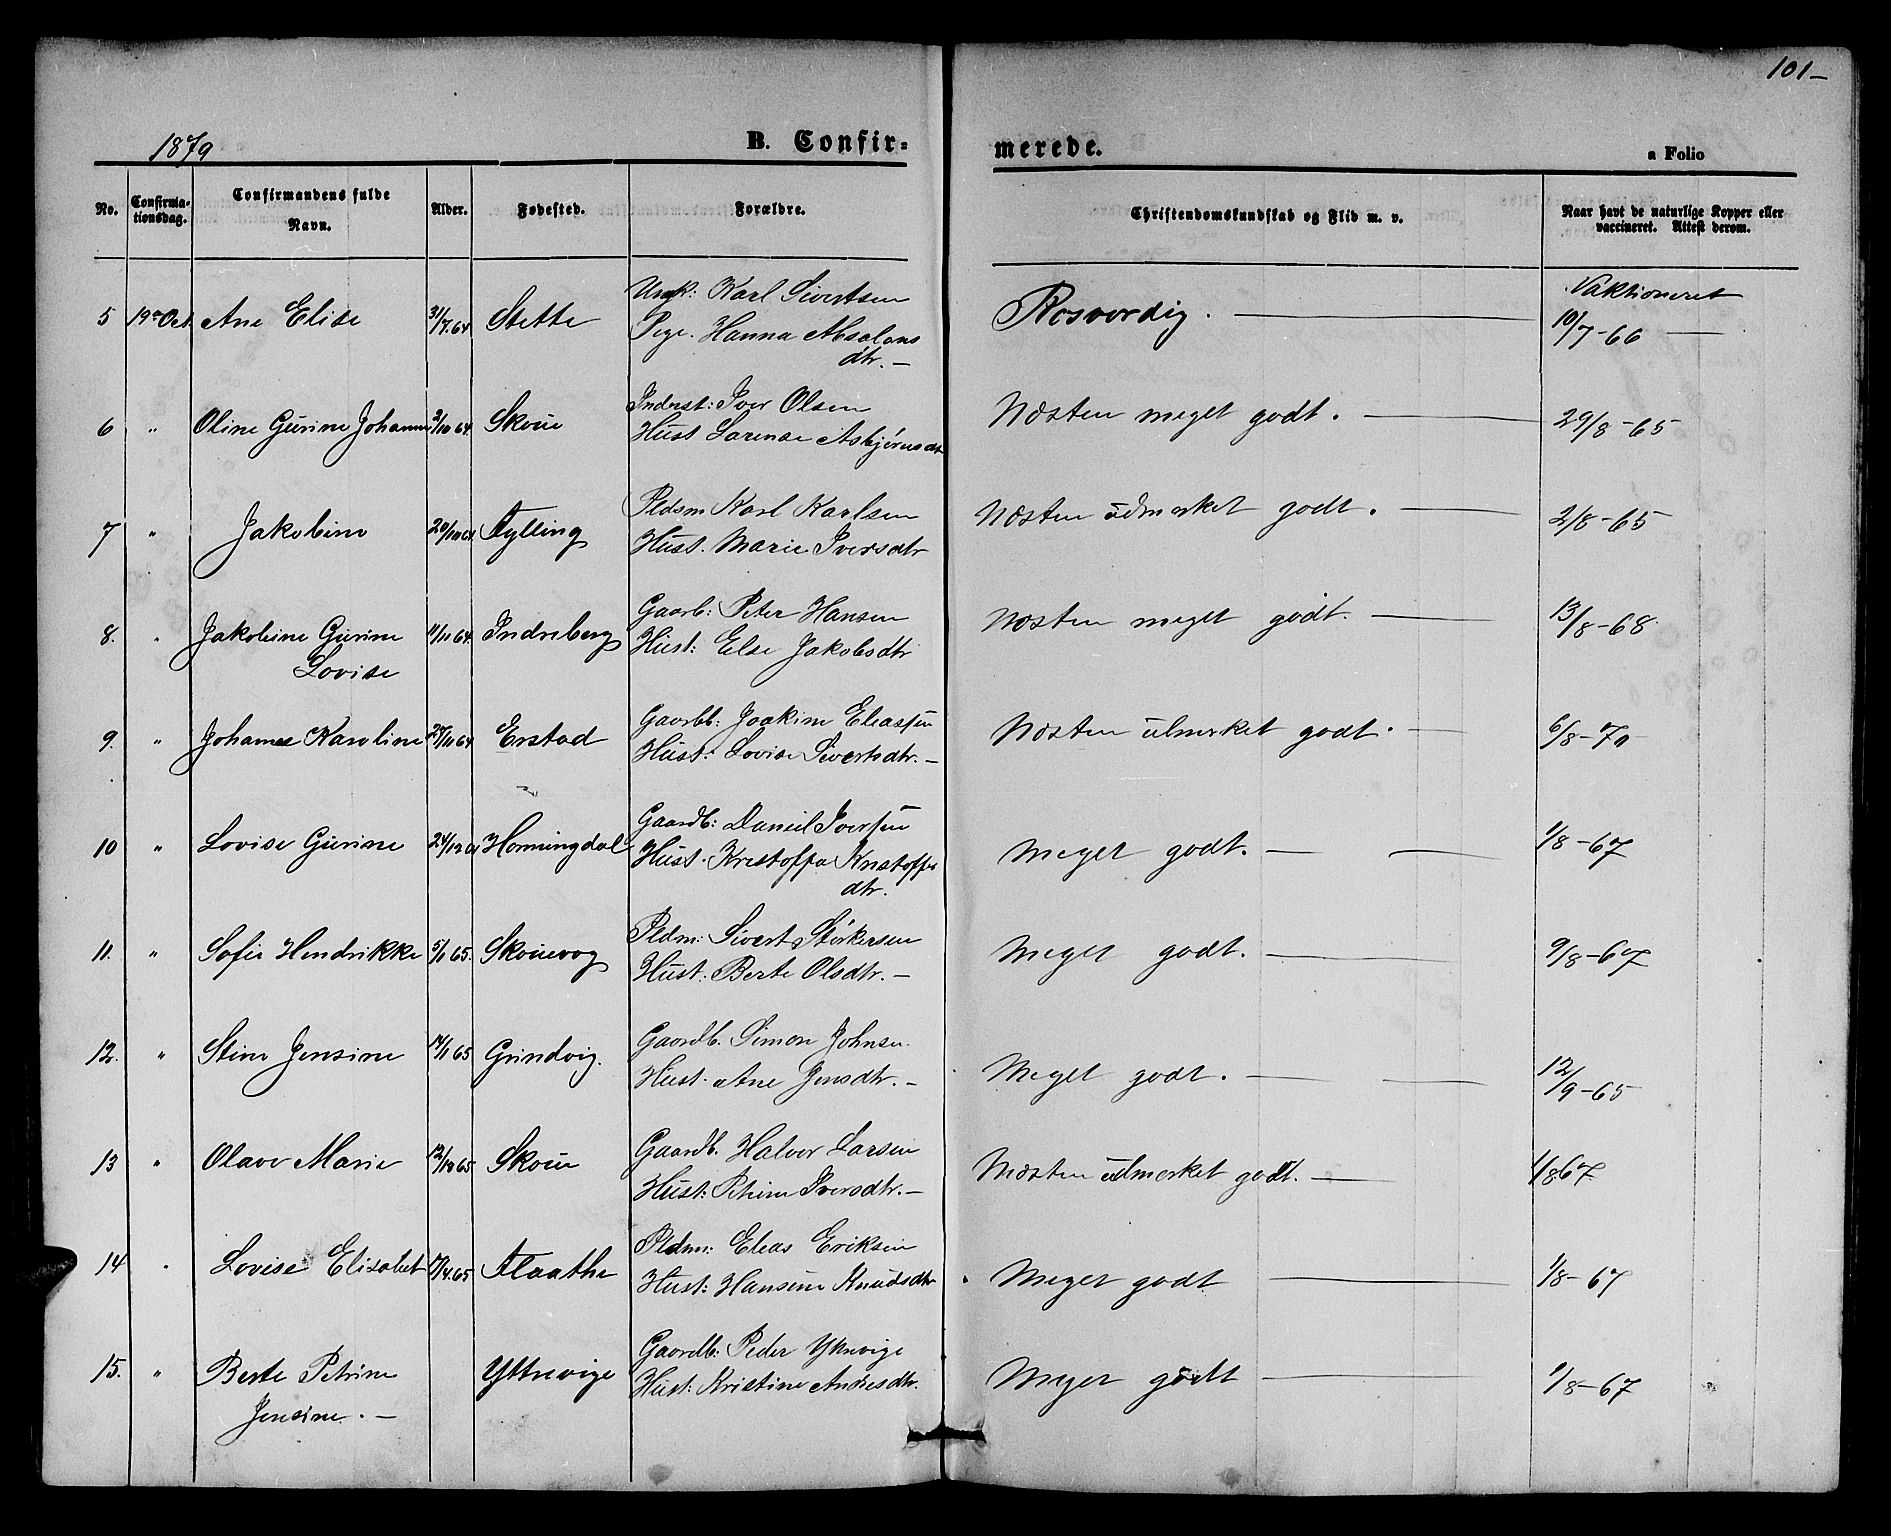 101-
1879
B. Confir=
merede.
a Folio
No.
Confirma-
tionsdag.
Confirmandens fulde
Navn.
Alder.
Fødested.
Forældre.
Christendomskundskab og Flid m. v.
Naar havt de naturlige Kopper eller
vaccineret. Attest derom.
5 19de Oct. Ane Elise 31/7.64 Stette Ungk: Karl Sivertsen Rosverdig. Vaktioneret
Pige. Hanna Absalons 10/7-66
dtr.-
6 " Oline Gurine Johanne 2/10 64. Skoue Inderst: Iver Olsen Næsten meget godt. 29/8-65
Hust Larense Asbjørnsdtr
7 " Jakobine 20/10 64. Fylling Pldsm Karl Karlsen Næsten udmerket godt. 2/8-65
Hust. Marie Iversdtr
8. " Jakobine Gurine 11/11 64. Indreberg Gaarb: Peter Hansen Næsten meget godt. 13/8-68
Lovise Hust: Else Jakobsdtr
9. " Johanne Karoline 27/11 64 Erstad Gaardb: Joakim Eliassen Næsten udmerket godt. 6/8-70
Hust: Lovise Sivertsdtr.-
10 " Lovise Gurine 24/12 64 Hornungdal Gaardb: Daniel Iversen Meget godt. 1/8-67
Hust. Kristoffa Kristoffer
dtr.
11. " Sofie Hendrikke 5/1 65. Skouevog Pldm: Sivert Størkersen Meget godt. 9/8-67
Hust. Berte Olsdtr.-
12. " Stine Jensine 14/1 65 Grindvig. Gaardb. Simon Johnsen Meget godt. 12/9-65
Hust. Ane Jensdtr.-
13 " Olave Marie 12/10 65 Skoue Gaardb. Halvor Larsen Næsten udmerket godt. 1/8 67
Hust: Petrine Iversdtr.-
14 " Lovise Elisabet 17/4.65 Flaathe Pldm: Elias Eriksen Meget godt 1/8-67
Hust: Hansine Knudsdtr
15. " Berte Petrine Yttrevige Gaardb: Peder Yttrevige Meget godt 1/8-67
Jensine.- Hust: Kristine Andersdtr.